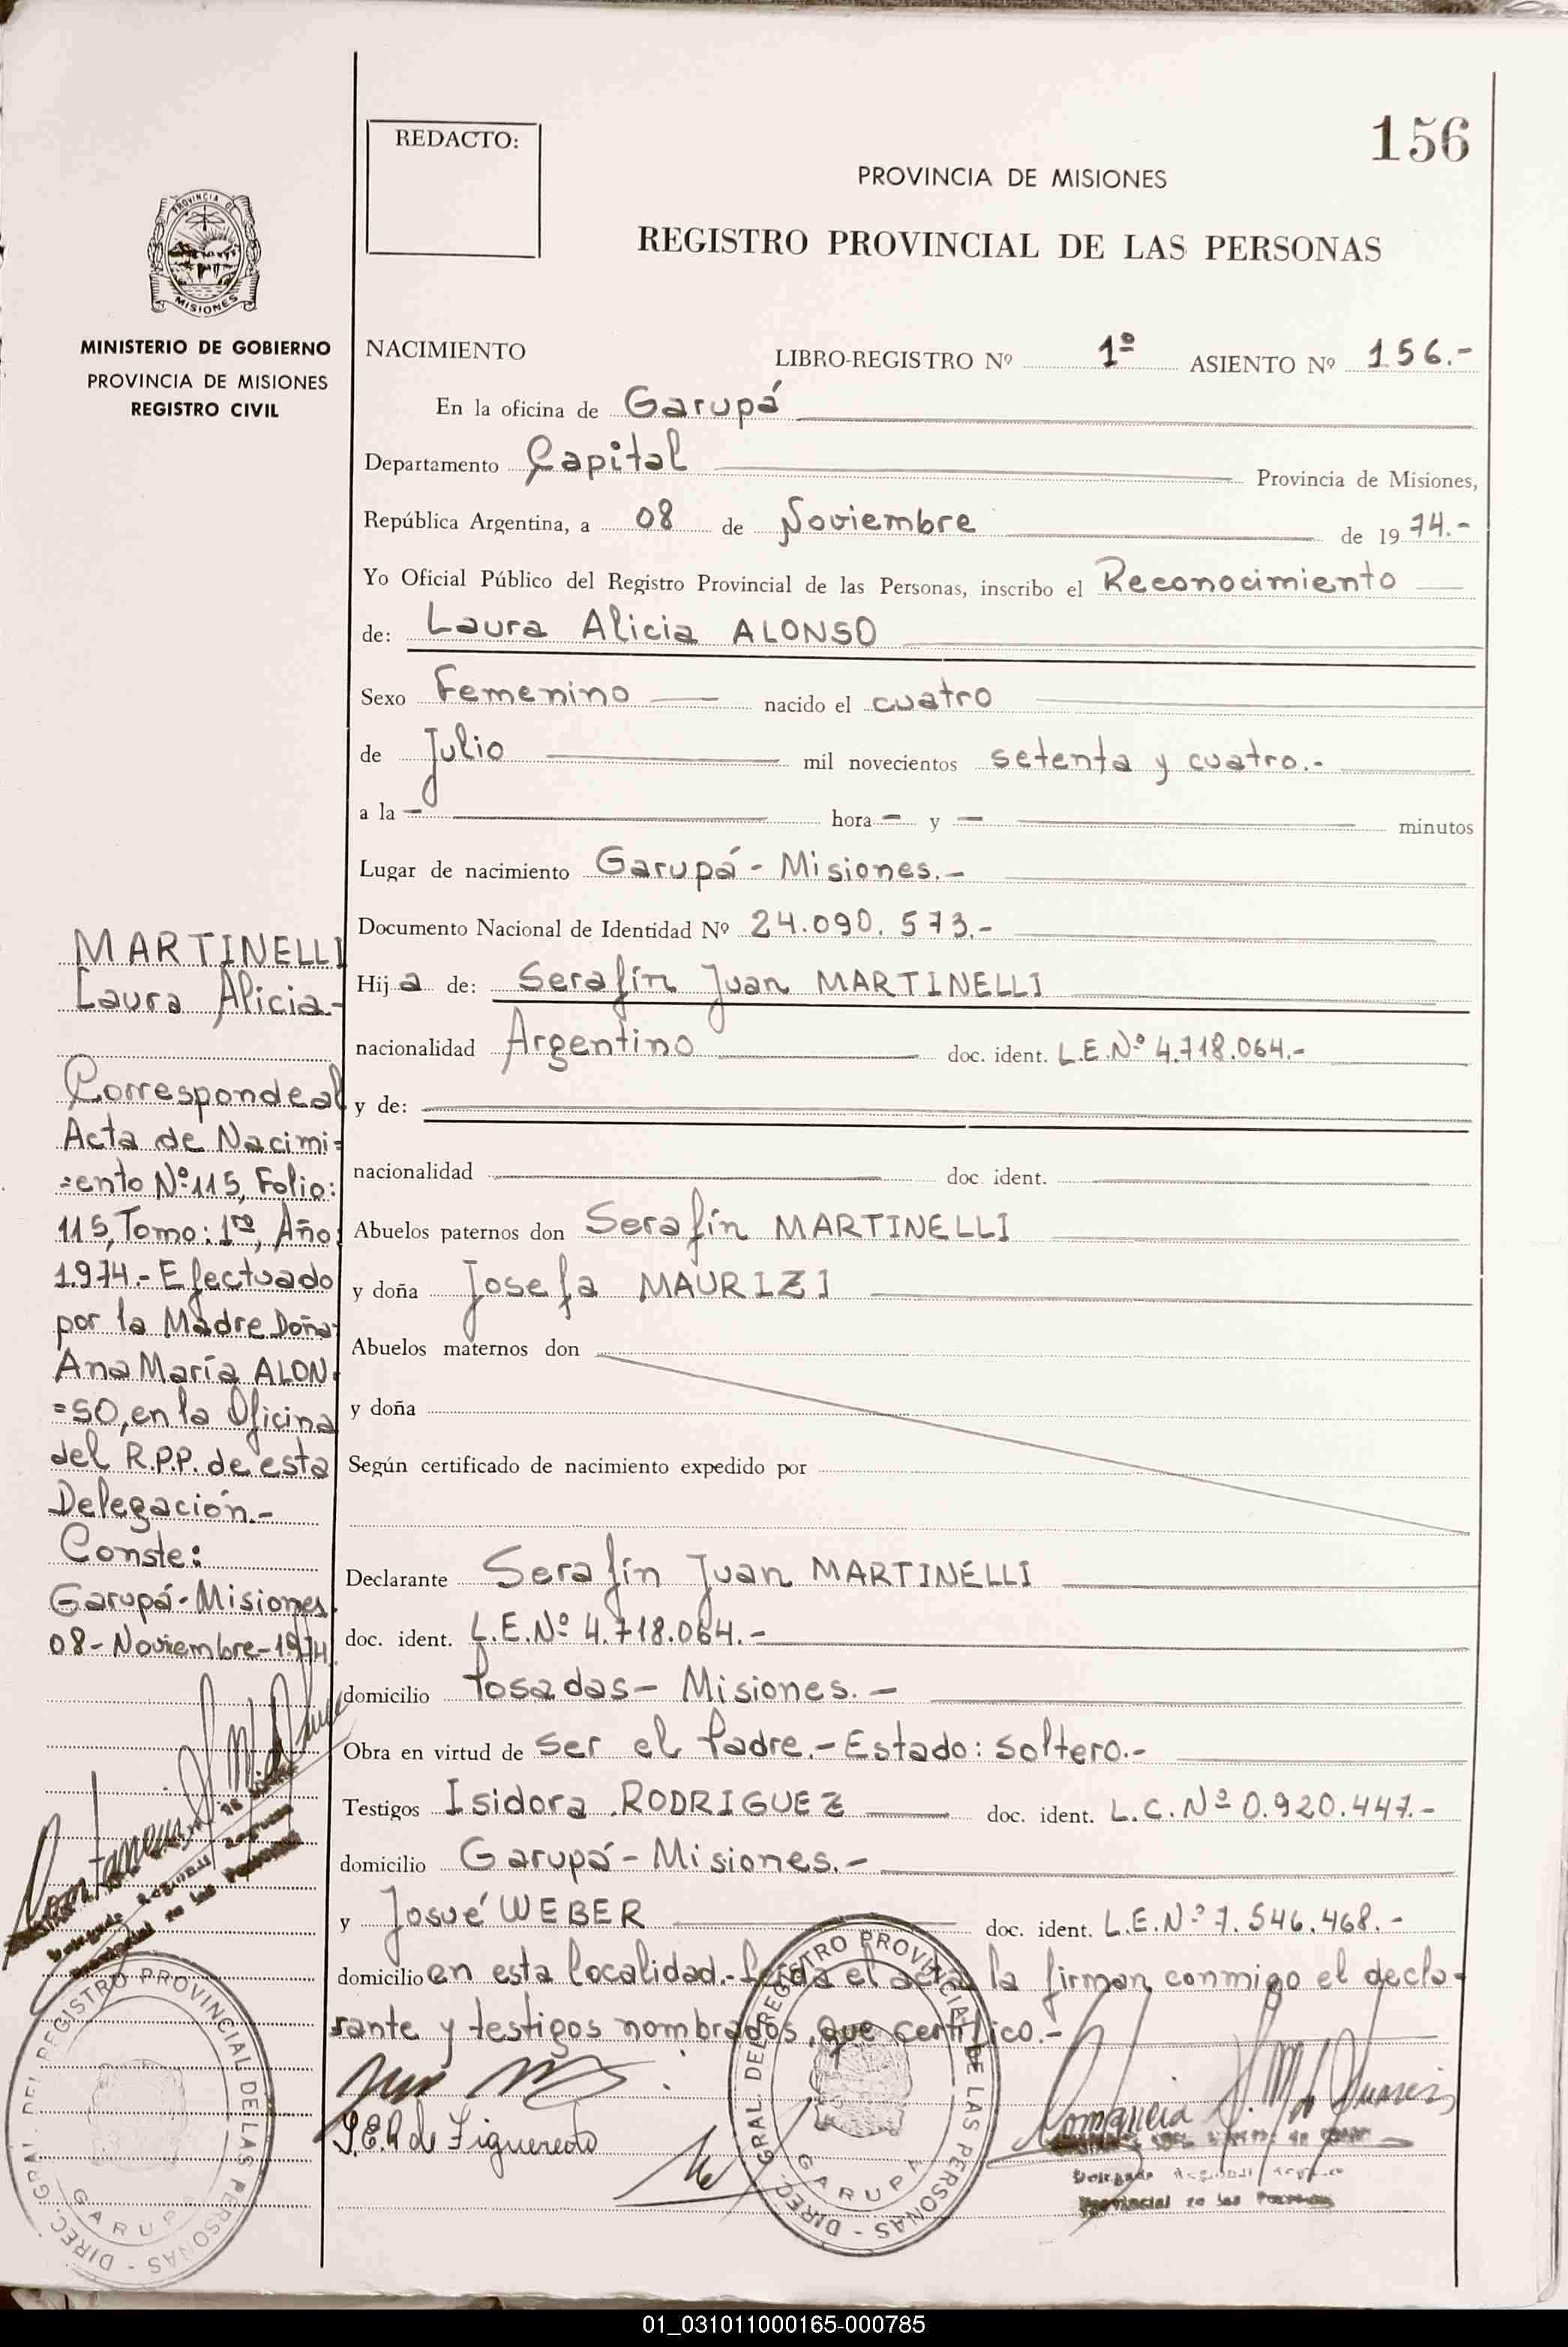 156
REDACTO:
PROVINCIA DE MISIONES
REGISTRO PROVINCIAL DE LAS PERSONAS
PROVINCIA DE
MISIONES
MINISTERIO DE GOBIERNO
PROVINCIA DE MISIONES
REGISTRO CIVIL
NACIMIENTO LIBRO-REGISTRO Nº 1º ASIENTO Nº 156.-
En la oficina de Garupá
Departamento Capital Provincia de Misiones,
República Argentina, a 08 de Noviembre de 1974.-
Yo Oficial Público del Registro Provincial de las Personas, inscribo el Reconocimiento
de: Laura Alicia ALONSO
Sexo Femenino nacido el cuatro
de Julio mil novecientos setenta y cuatro.-
a la - hora - y - minutos
Lugar de nacimiento Garupá - Misiones.-
Documento Nacional de Identidad Nº 24.090.573.-
Hija de: Serafín Juan MARTINELLI
nacionalidad Argentino doc. ident. L.E.Nº 4.718.064.-
y de:
nacionalidad doc. ident.
Abuelos paternos don Serafín MARTINELLI
y doña Josefa MAURIZI
Abuelos maternos don
y doña
Según certificado de nacimiento expedido por
Declarante Serafín Juan MARTINELLI
doc. ident. L.E.Nº 4.718.064.-
domicilio Posadas - Misiones.-
Obra en virtud de ser el Padre.- Estado: soltero.-
Testigos Isidora RODRIGUEZ doc. ident. L.C.Nº 0.920.447.-
domicilio Garupá - Misiones.-
y Josué WEBER doc. ident. L.E.Nº 7.546.468.-
domicilio en esta localidad.- Leída el acta, la firman conmigo el decla-
rante y testigos nombrados, que certifico.-
MARTINELLI
Laura Alicia-
Corresponde al
Acta de Nacimi=
=ento Nº 115, Folio:
115, Tomo: 1ro, Año:
1.974.- Efectuado
por la Madre Doña:
Ana María ALON-
=SO, en la Oficina
del R.P.P. de esta
Delegación.-
Conste:
Garupá - Misiones.
08 - Noviembre - 1974.
Delegada Regional Registro
Provincial de las Personas
DIREC. GRAL. DEL REGISTRO PROVINCIAL DE LAS PERSONAS -
GARUPA
I.E.R de Figueredo
DIREC. GRAL. DEL REGISTRO PROVINCIAL DE LAS PERSONAS -
GARUPA
Delegada Regional Registro
Provincial de las Personas
01_031011000165-000785